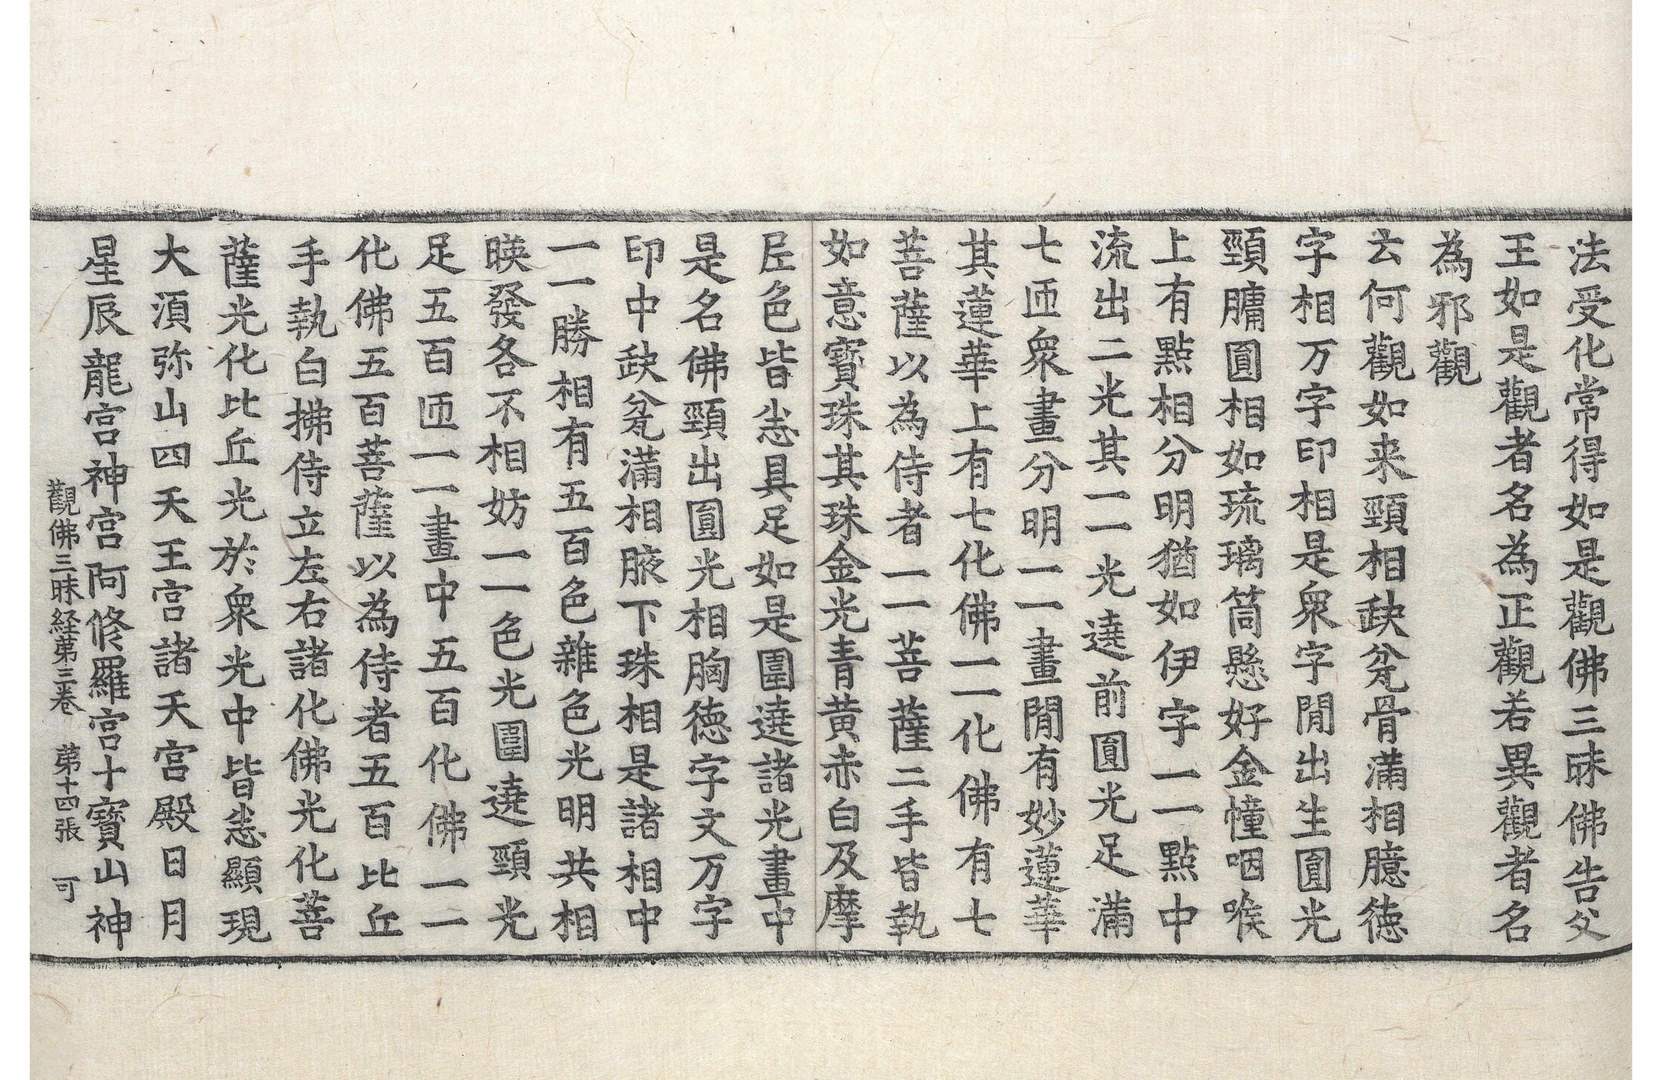 法受化常得如是觀佛三昧佛告父
王如是觀者名為正觀若異觀者名
為邪觀
云何觀如来頸相缺瓫骨滿相臆德
字相万字印相是衆字閒出生圓光
頸膅圓相如琉璃筒懸好金幢咽喉
上有點相分明猶如伊字一一點中
流出二光其一一光遶前圓光足滿
七匝衆畫分明一一畫閒有妙蓮華
其蓮華上有七化佛一一化佛有七
菩薩以為侍者一一菩薩二手皆執
如意寶珠其珠金光青黃赤白及摩
尼色皆悉具足如是圍遶諸光畫中
是名佛頸出圓光相胸德字文万字
印中缺瓫滿相腋下珠相是諸相中
一一勝相有五百色雜色光明共相
暎發各不相妨一一色光圍遶頸光
足五百匝一一畫中五百化佛一一
化佛五百菩薩以為侍者五百比丘
手執白拂侍立左右諸化佛光化菩
薩光化比丘光於衆光中皆悉顯現
大須弥山四天王宮諸天宮殿日月
星辰龍宮神宮阿修羅宮十寶山神
觀佛三昧経第三卷 第十四張 可